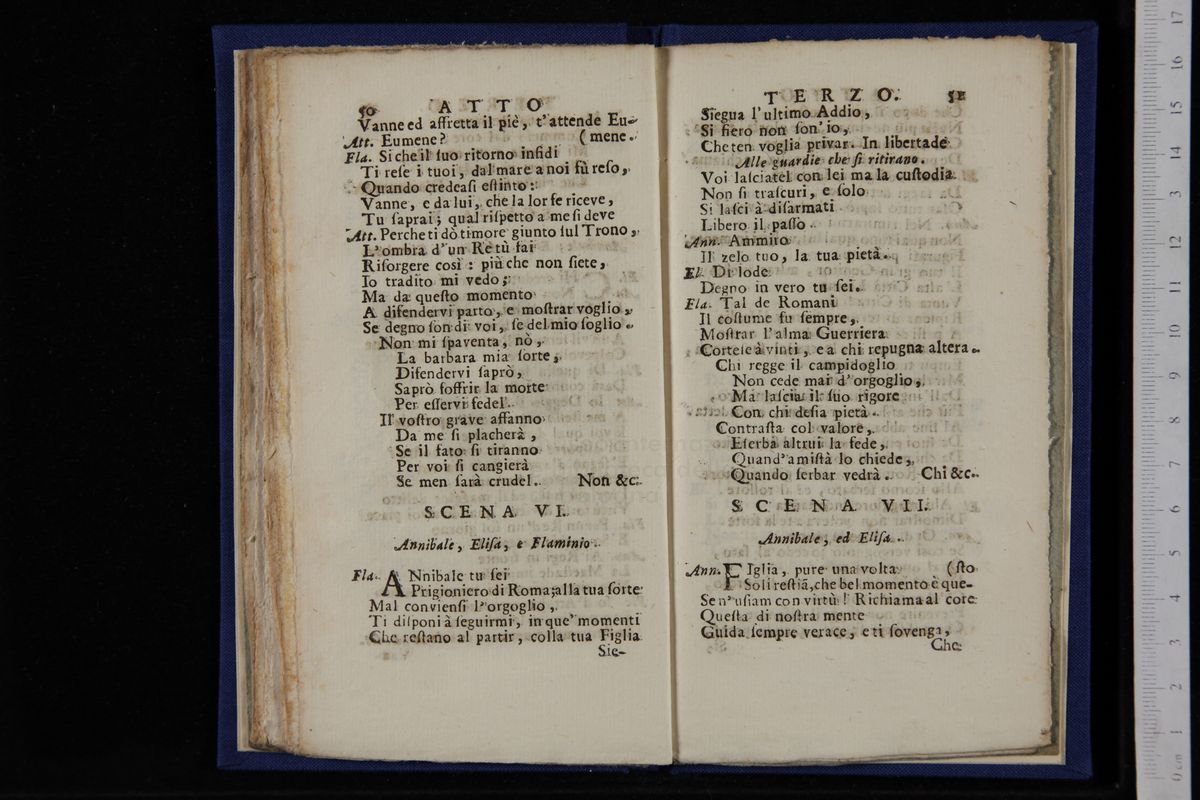 50 ATTO
Vanne ed affretta il piè, t'attende Eu-
Att. Eumene? (mene.
Fla. Si che il suo ritorno infidi
Ti rese i tuoi, dal mare a noi fù reso,
Quando credeasi estinto:
Vanne, e da lui, che la lor fe riceve,
Tu saprai; qual rispetto a me si deve
Att. Perche ti dò timore giunto sul Trono,
L'ombra d'un Re tù fai
Risorgere così: più che non siete,
Io tradito mi vedo;
Ma da questo momento
A difendervi parto, e mostrar voglio,
Se degno son di voi, se del mio soglio.
Non mi spaventa, nò,
La barbara mia sorte,
Difendervi saprò,
Saprò soffrir la morte
Per esservi fedel.
Il vostro grave affanno
Da me si placherà,
Se il fato si tiranno
Per voi si cangierà
Se men sarà crudel. Non &c.
SCENA VI.
Annibale, Elisa, e Flaminio.
Fla. ANnibale tu sei
Prigioniero di Roma; alla tua sorte
Mal conviensi l'orgoglio,
Ti disponi à seguirmi, in que' momenti
Che restano al partir, colla tua Figlia
Sie-
TERZO. 51
Siegua l'ultimo Addio,
Si fiero non son' io,
Che ten voglia privar. In libertade
Alle guardie che si ritirano.
Voi lasciatel con lei ma la custodia
Non si trascuri, e solo
Si lasci à disarmati
Libero il passo.
Ann. Ammiro
Il zelo tuo, la tua pietà.
El. Di lode
Degno in vero tu sei.
Fla. Tal de Romani
Il costume fu sempre,
Mostrar l'alma Guerriera
Cortese à vinti, e a chi repugna altera.
Chi regge il campidoglio
Non cede mai d'orgoglio,
Ma lascia il suo rigore
Con chi desia pietà.
Contrasta col valore,
Eserba altrui la fede,
Quand'amistà lo chiede,
Quando serbar vedrà. Chi &c.
SCENA VII.
Annibale, ed Elisa.
Ann. FIglia, pure una volta (sto
Soli restiã, che bel momento è que-
Se n'usiam con virtù! Richiama al core
Questa di nostra mente
Guida sempre verace, e ti sovenga,
Che
0 cm 1 2 3 4 5 6 7 8 9 10 11 12 13 14 15 16 17